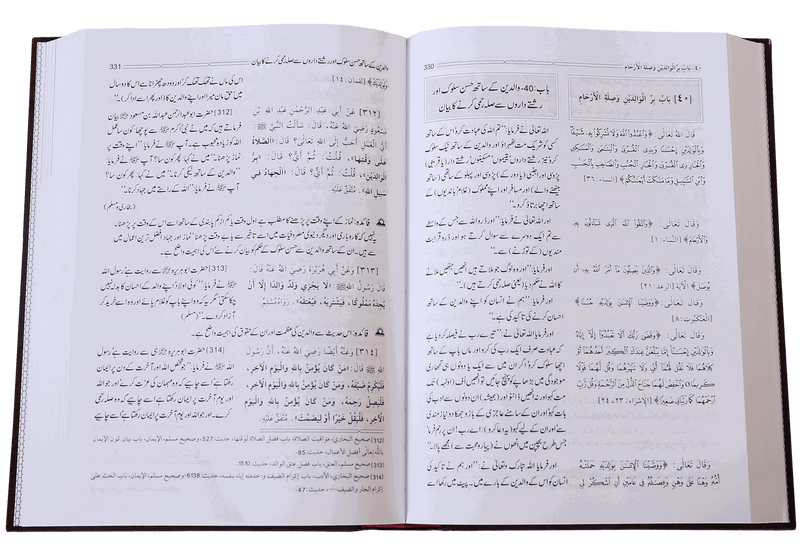 ٤٠- بَابُ بِرِّ الْوَالِدَيْنِ وَصِلَةِ الْأَرْحَامِ
330
[٤٠] بَابُ بِرِّ الْوَالِدَيْنِ وَصِلَةِ الْأَرْحَامِ
قَالَ اللهُ تَعَالٰى: ﴿وَاعْبُدُوا اللّٰهَ وَلَا تُشْرِكُوْا بِهٖ شَيْـًٔا
وَّبِالْوَالِدَيْنِ اِحْسَانًا وَّبِذِى الْقُرْبٰى وَالْيَتٰمٰى وَالْمَسٰكِيْنِ
وَالْجَارِ ذِى الْقُرْبٰى وَالْجَارِ الْجُنُبِ وَالصَّاحِبِ بِالْجَنْبِ
وَابْنِ السَّبِيْلِ وَمَا مَلَكَتْ اَيْمَانُكُمْ﴾ [النساء: ٣٦]
وَقَالَ تَعَالٰى: ﴿وَاتَّقُوا اللّٰهَ الَّذِىْ تَسَآءَلُوْنَ بِهٖ
وَالْاَرْحَامَ﴾ [النساء: ١]
وَقَالَ تَعَالٰى: ﴿وَالَّذِيْنَ يَصِلُوْنَ مَآ اَمَرَ اللّٰهُ بِهٖٓ اَنْ
يُّوْصَلَ﴾ الآية [الرعد: ٢١]
وَقَالَ تَعَالٰى: ﴿وَوَصَّيْنَا الْاِنْسَانَ بِوَالِدَيْهِ حُسْنًا﴾
[العنكبوت: ٨]
وَقَالَ تَعَالٰى: ﴿وَقَضٰى رَبُّكَ اَلَّا تَعْبُدُوْٓا اِلَّآ اِيَّاهُ
وَبِالْوَالِدَيْنِ اِحْسَانًا اِمَّا يَبْلُغَنَّ عِنْدَكَ الْكِبَرَ اَحَدُهُمَآ اَوْ
كِلَاهُمَا فَلَا تَقُلْ لَّهُمَآ اُفٍّ وَّلَا تَنْهَرْهُمَا وَقُلْ لَّهُمَا قَوْلًا
كَرِيْمًا وَاخْفِضْ لَهُمَا جَنَاحَ الذُّلِّ مِنَ الرَّحْمَةِ وَقُلْ رَّبِّ
ارْحَمْهُمَا كَمَا رَبَّيٰنِىْ صَغِيْرًا﴾ [الإسراء: ٢٣، ٢٤]
وَقَالَ تَعَالٰى: ﴿وَوَصَّيْنَا الْاِنْسَانَ بِوَالِدَيْهِ حَمَلَتْهُ
اُمُّهٗ وَهْنًا عَلٰى وَهْنٍ وَّفِصَالُهٗ فِىْ عَامَيْنِ اَنِ اشْكُرْ لِىْ
باب: 40- والدین کے ساتھ حسن سلوک اور
رشتے داروں سے صلہ رحمی کرنے کا بیان
اللہ تعالیٰ نے فرمایا: ”تم اللہ کی عبادت کرو، اس کے ساتھ
کسی کو شریک مت ٹھہراؤ اور والدین کے ساتھ نیک سلوک
کرو نیز رشتے داروں، یتیموں، مسکینوں، رشتے دار (یا قریبی)
پڑوسی اور اجنبی (یا دور کے) پڑوسی اور پہلو کے ساتھی (ساتھ
بیٹھنے والے) اور مسافر اور اپنے مملوک (غلام، باندیوں) کے
ساتھ اچھا برتاؤ کرو۔“
اور اللہ تعالیٰ نے فرمایا: ”اور ڈرو اللہ سے جس کے واسطے
سے تم ایک دوسرے سے سوال کرتے ہو اور ڈرو قرابت
مندیوں (کے توڑنے) سے۔“
اور فرمایا: ”اور وہ لوگ جو ملاتے ہیں انھیں جنھیں ملانے
کا اللہ نے حکم دیا (یعنی صلہ رحمی کرتے ہیں۔)“
اور فرمایا: ”ہم نے انسان کو اپنے والدین کے ساتھ
احسان کرنے کی تاکید کی ہے۔“
اور فرمایا اللہ تعالیٰ نے: ”تیرے رب نے فیصلہ کر دیا ہے
کہ عبادت صرف ایک رب کی کرو اور ماں باپ کے ساتھ
اچھا سلوک کرو، اگر ان میں سے ایک یا دونوں ہی تیری
موجودگی میں بڑھاپے کو پہنچ جائیں تو انھیں اُف (ہونہہ) تک
مت کہو اور نہ انھیں ڈانٹو اور (ہمیشہ) ان دونوں سے ادب کی
بات کہو اور ان کے سامنے عاجزی کے بازو جھکا دو نیازمندی
سے اور ان کے لیے کہو (یہ دعا کرو): اے رب! ان پر رحم فرما
جس طرح بچپن میں انھوں نے (پیار و محبت سے) مجھے پالا۔“
اور فرمایا اللہ تبارک و تعالیٰ نے: ”اور ہم نے تاکید کی
انسان کو اس کے والدین کے بارے میں۔ پیٹ میں رکھا اس
والدین کے ساتھ حسن سلوک اور رشتے داروں سے صلہ رحمی کرنے کا بیان
331
وَلِوَالِدَيْكَ﴾ [لقمان: ١٤]
[٣١٢] عَنْ أَبِي عَبْدِ الرَّحْمٰنِ عَبْدِ اللهِ بْنِ
مَسْعُودٍ رَضِيَ اللهُ عَنْهُ، قَالَ: سَأَلْتُ النَّبِيَّ ﷺ
أَيُّ الْعَمَلِ أَحَبُّ إِلَى اللهِ تَعَالٰى؟ قَالَ: «الصَّلَاةُ
عَلٰى وَقْتِهَا»، قُلْتُ: ثُمَّ أَيٌّ؟ قَالَ: «بِرُّ
الْوَالِدَيْنِ»، قُلْتُ: ثُمَّ أَيٌّ؟ قَالَ: «الْجِهَادُ فِي
سَبِيلِ اللهِ». مُتَّفَقٌ عَلَيْهِ.
اس کی ماں نے تھک تھک کر اور دودھ چھڑانا ہے اس کا دو سال
میں، حق مان میرا اور اپنے والدین کا (اور پھر اسے ادا کر)۔“
[312] حضرت ابو عبدالرحمٰن عبداللہ بن مسعود ؓ بیان
فرماتے ہیں کہ میں نے نبی کریم ﷺ سے پوچھا: کون سا عمل
اللہ کو زیادہ محبوب ہے؟ آپ ﷺ نے فرمایا: ”اپنے وقت پر
نماز پڑھنا۔“ میں نے کہا: پھر کون سا؟ آپ ﷺ نے فرمایا:
”والدین کے ساتھ نیکی کرنا۔“ میں نے کہا: پھر کون سا؟
آپ ﷺ نے فرمایا: ”اللہ کے راستے میں جہاد کرنا۔“
(بخاری و مسلم)
فائدہ: نماز کے اپنے وقت پر پڑھنے کا مطلب ہے اول وقت یا کم از کم پابندی کے ساتھ اسے اس کے وقت پر پڑھنا۔
یہ نہیں کہ کاروباری اور دیگر دنیوی مصروفیات میں اسے تاخیر سے یا بے وقت پڑھنا۔ نماز اور جہاد افضل ترین اعمال میں
سے ہیں۔ ان کے ساتھ والدین سے حسن سلوک کے حکم کو بیان کرنے سے اس کی اہمیت واضح ہے۔
[٣١٣] وَعَنْ أَبِي هُرَيْرَةَ رَضِيَ اللهُ عَنْهُ قَالَ:
قَالَ رَسُولُ اللهِ ﷺ: «لَا يَجْزِي وَلَدٌ وَالِدًا إِلَّا أَنْ
يَجِدَهُ مَمْلُوكًا، فَيَشْتَرِيَهُ، فَيُعْتِقَهُ». رَوَاهُ مُسْلِمٌ.
[313] حضرت ابو ہریرہ ؓ سے روایت ہے، رسول اللہ
ﷺ نے فرمایا: ”کوئی اولاد اپنے والد کے احسان کا بدلہ نہیں
چکا سکتی مگر یہ کہ وہ اپنے باپ کو غلام پائے اور وہ اسے خرید کر
آزاد کر دے۔“ (مسلم)
فائدہ: اس حدیث سے والدین کی عظمت اور ان کے حقوق کی اہمیت واضح ہے۔
[٣١٤] وَعَنْهُ أَيْضًا رَضِيَ اللهُ عَنْهُ، أَنَّ رَسُولَ
اللهِ ﷺ قَالَ: «مَنْ كَانَ يُؤْمِنُ بِاللهِ وَالْيَوْمِ الْآخِرِ،
فَلْيُكْرِمْ ضَيْفَهُ، وَمَنْ كَانَ يُؤْمِنُ بِاللهِ وَالْيَوْمِ الْآخِرِ،
فَلْيَصِلْ رَحِمَهُ، وَمَنْ كَانَ يُؤْمِنُ بِاللهِ وَالْيَوْمِ
الْآخِرِ، فَلْيَقُلْ خَيْرًا أَوْ لِيَصْمُتْ». مُتَّفَقٌ عَلَيْهِ.
[314] حضرت ابو ہریرہ ؓ ہی سے روایت ہے، رسول
اللہ ﷺ نے فرمایا: ”جو شخص اللہ اور آخرت کے دن پر ایمان
رکھتا ہے اسے چاہیے کہ وہ مہمان کی عزت کرے اور جو اللہ
اور یوم آخرت پر ایمان رکھتا ہے اسے چاہیے کہ وہ صلہ رحمی
کرے۔ اور جو اللہ اور یوم آخرت پر ایمان رکھتا ہے اسے چاہیے
[312] صحيح البخاري، مواقيت الصلاة، باب فضل الصلاة لوقتها، حديث: 527، وصحيح مسلم، الإيمان، باب بيان كون الإيمان
بالله تعالى أفضل الأعمال، حديث: 85.
[313] صحيح مسلم، العتق، باب فضل عتق الوالد، حديث: 1510.
[314] صحيح البخاري، الأدب، باب إكرام الضيف و خدمته إياه بنفسه، حديث: 6138، وصحيح مسلم، الإيمان، باب الحث على
إكرام الجار والضيف ......، حديث: 47.